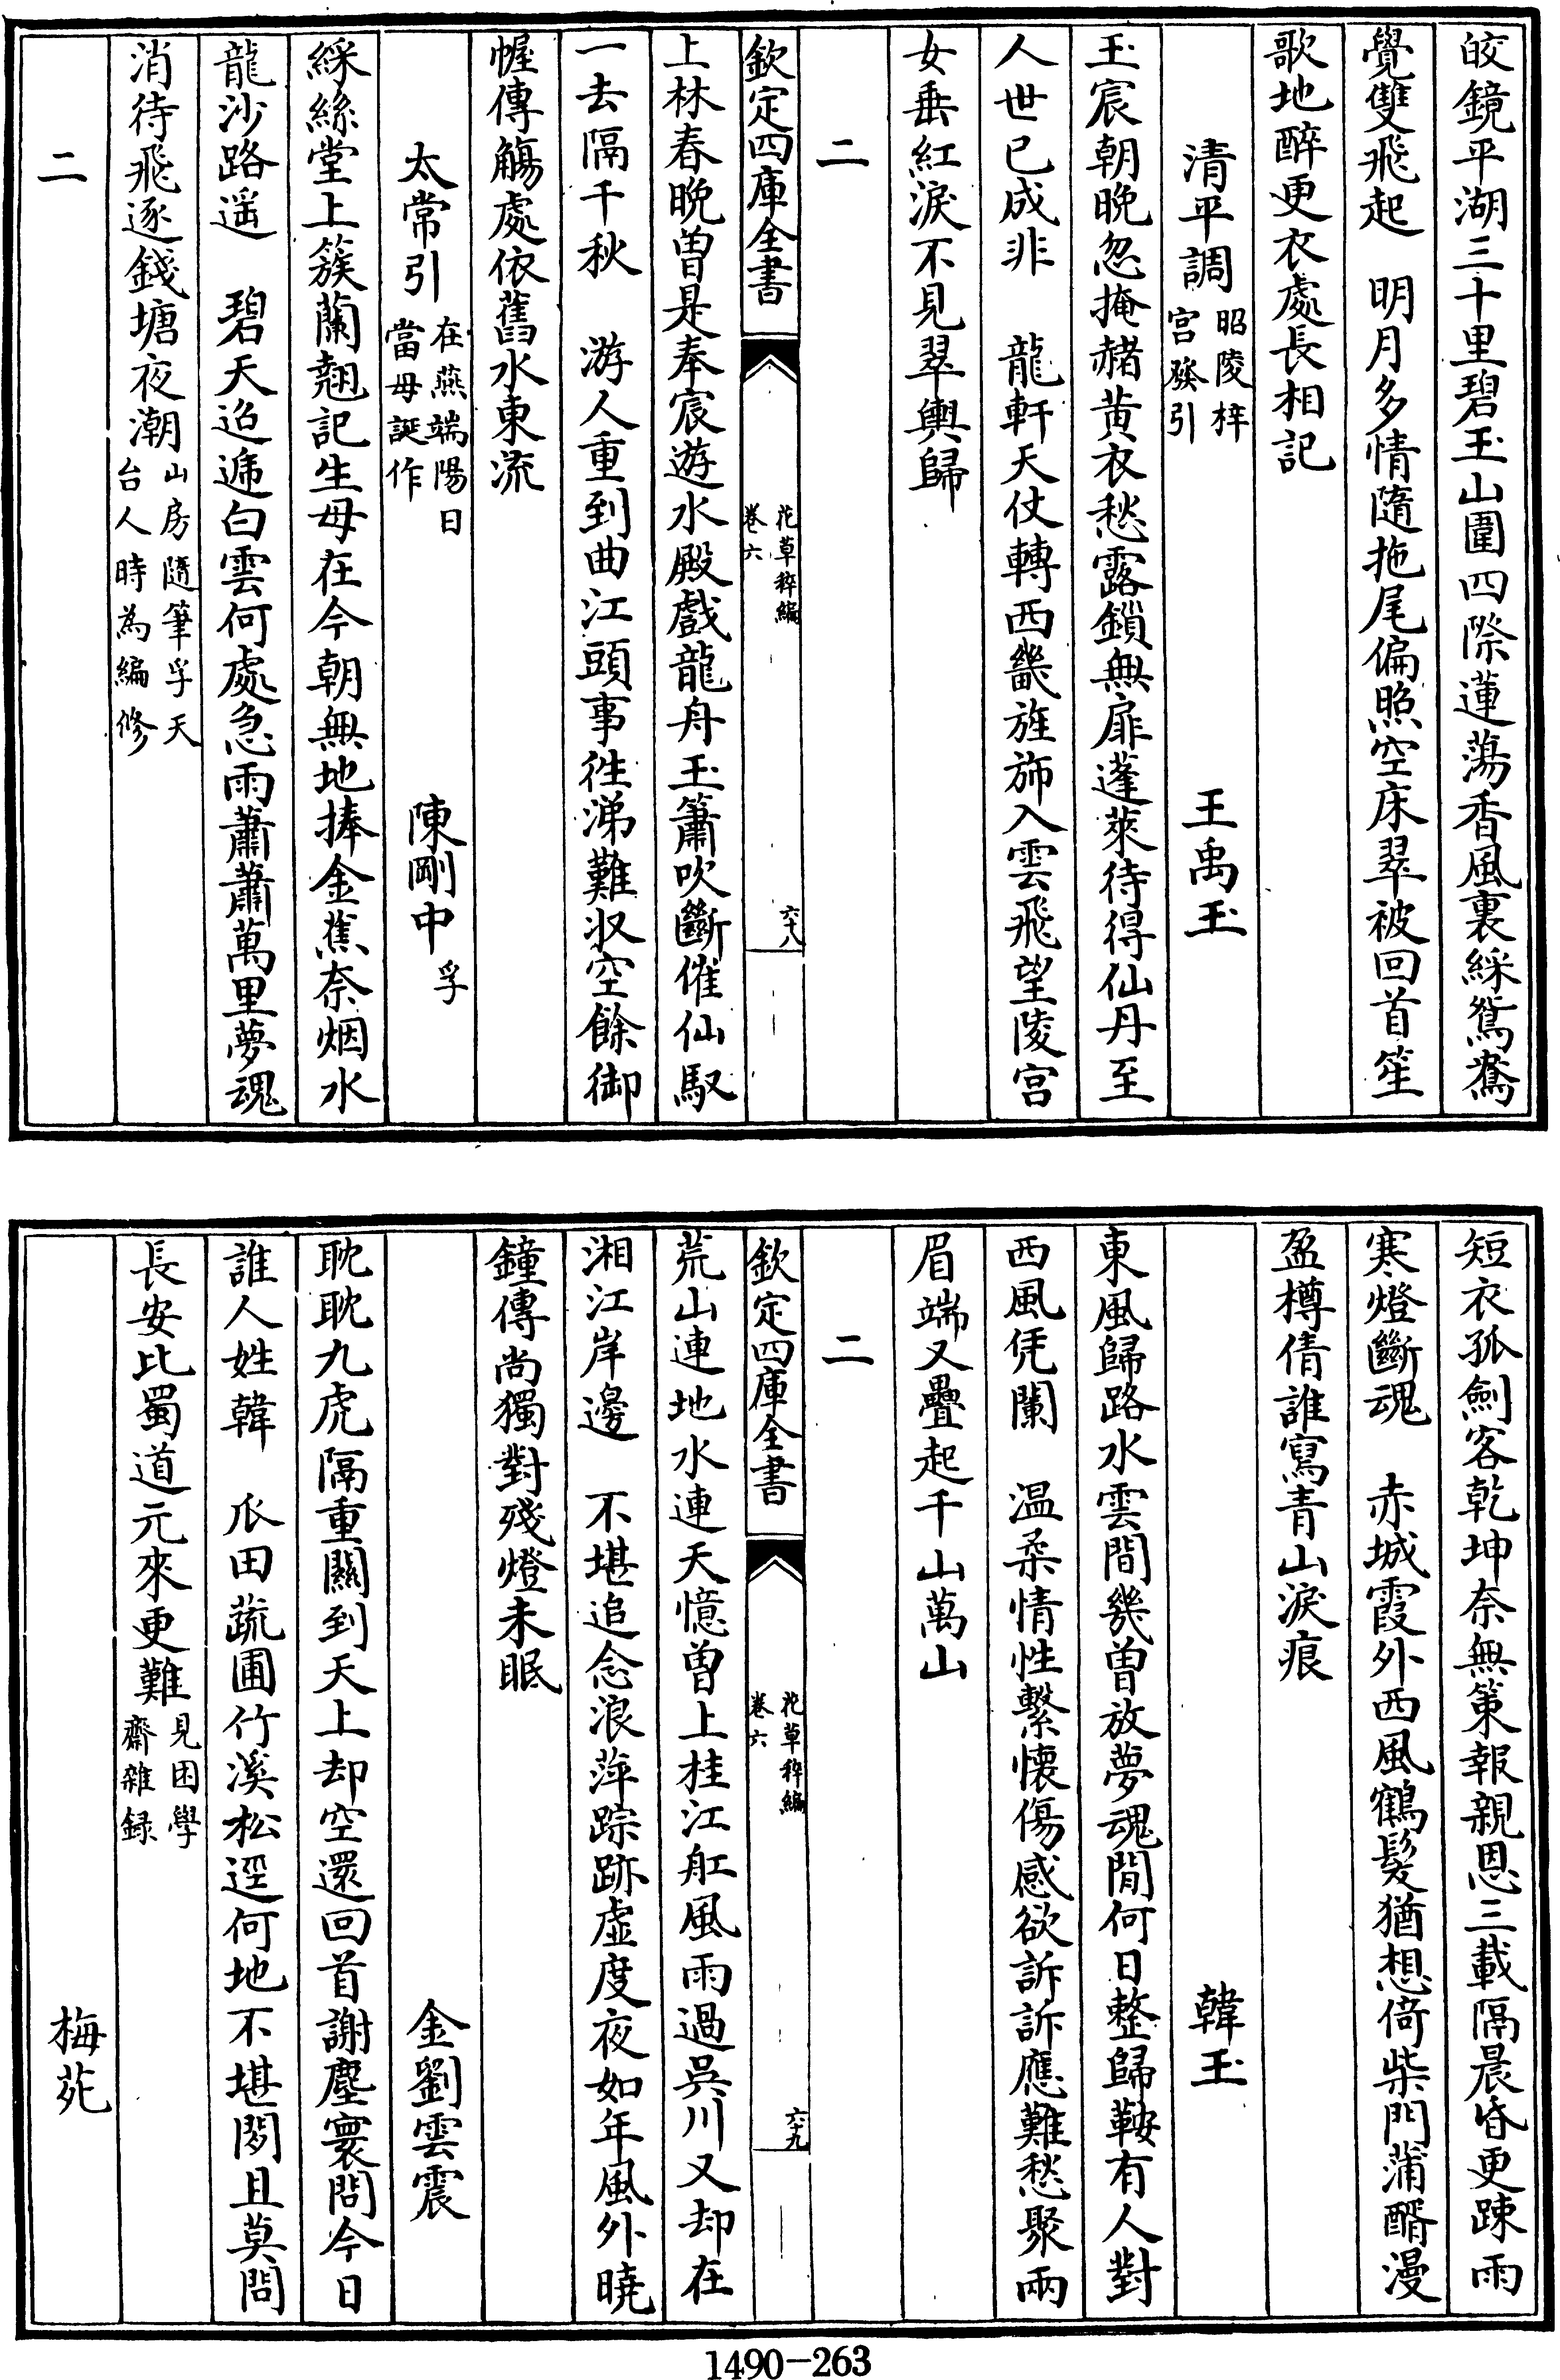 皎鏡平湖三十里碧玉山圍四際蓮蕩香風裏綵鴛鴦
覺雙飛起　明月多情隨拖尾偏照空床翠被回首笙
歌地醉更衣處長相記
清平調昭陵梓宮發引　王禹玉
玉宸朝晚忽掩赭黄衣愁露鎖無扉蓬萊待得仙丹至
人世已成非　龍軒天仗轉西畿旌斾入雲飛望陵宮
女垂紅淚不見翠輿歸
二
欽定四庫全書　花草稡編卷六　六十八
上林春晚曽是奉宸遊水殿戲龍舟玉簫吹斷催仙馭
一去隔千秋　游人重到曲江頭事徃涕難収空餘御
幄傳觴處依舊水東流
太常引在燕端陽日當母誕作　陳剛中孚
綵絲堂上簇蘭翹記生母在今朝無地捧金蕉奈烟水
龍沙路遥　碧天迢遞白雲何處急雨蕭蕭萬里夢魂
消待飛逐錢塘夜潮山房隨筆孚天台人時為編修
二
短衣孤劍客乾坤奈無策報親恩三載隔晨昏更踈雨
寒燈斷魂　赤城霞外西風鶴髮猶想倚柴門蒲醑漫
盈樽倩誰寫青山淚痕
韓玉
東風歸路水雲間幾曽放夢魂閒何日整歸鞍有人對
西風凭闌　温柔情性繫懐傷感欲訴訴應難愁聚兩
眉端又疊起千山萬山
二
欽定四庫全書　花草稡編卷六　六十九
荒山連地水連天憶曽上桂江舡風雨過吳川又却在
湘江岸邊　不堪追念浪萍踪跡虛度夜如年風外曉
鐘傳尚獨對殘燈未眠
金劉雲震
耽耽九虎隔重關到天上却空還回首謝塵寰問今日
誰人姓韓　瓜田蔬圃竹溪松逕何地不堪閒且莫問
長安比蜀道元來更難見困學齋雜録
梅苑
1490-263